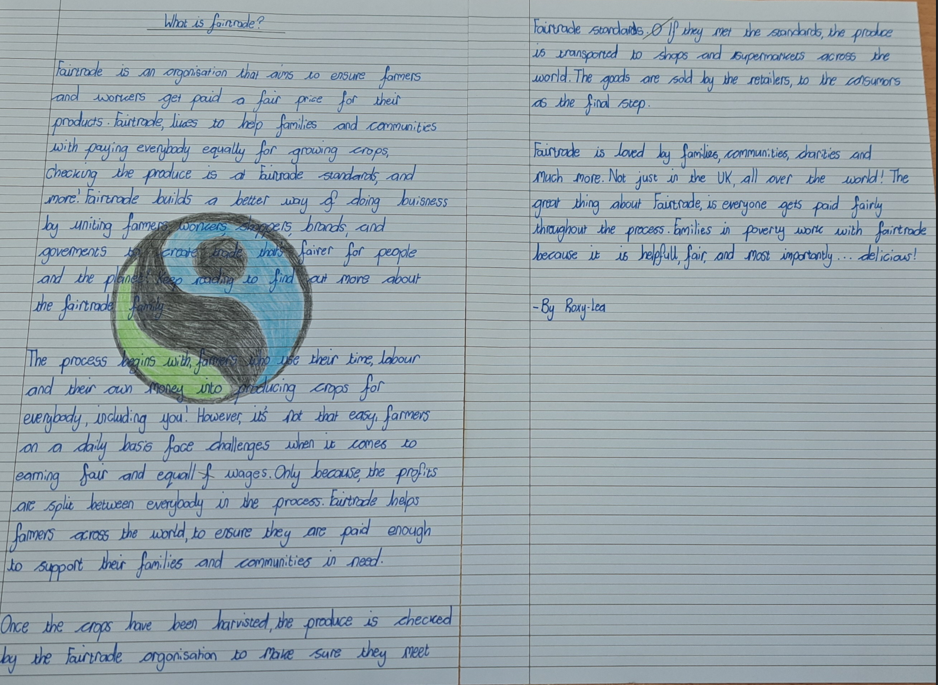 What is fairtrade?
Fairtrade is an organisation that aims to ensure farmers
and workers get paid a fair price for their
products. Fairtrade, likes to help families and communities
with paying everybody equally for growing crops,
checking the produce is at Fairtrade standards, and
more! Fairtrade builds a better way of doing buisness
by uniting farmers, workers, shoppers, brands, and
goverments to create trade that's fairer for people
and the planet! Keep reading to find out more about
the fairtrade family
The process begins with, farmers who use their time, labour
and their own money into producing crops for
everybody, including you! However, it's not that easy, farmers
on a daily basis face challenges when it comes to
earning fair and equall wages. Only because, the profits
are split between everybody in the process. Fairtrade helps
farmers across the world, to ensure they are paid enough
to support their families and communities in need.
Once the crops have been harvisted, the produce is checked
by the Fairtrade organisation to make sure they meet
Fairtrade standards. If they met the standards, the produce
is transported to shops and supermarkets across the
world. The goods are sold by the retailers, to the consumors
as the final step.
Fairtrade is loved by families, communities, charities and
much more. Not just in the UK, all over the world! The
great thing about Fairtrade, is everyone gets paid fairly
throughout the process. Families in poverty work with fairtrade
because it is helpfull, fair, and most importantly... delicious!
-By Roxy-Lea